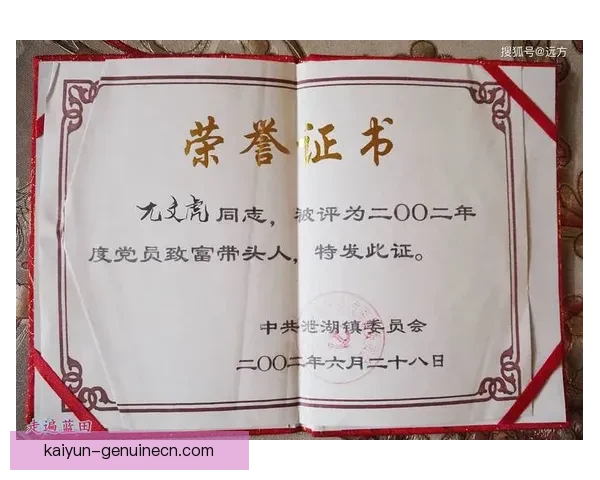 搜狐号@远方
荣誉证书
尤文虎同志，被评为二〇〇二年
度党员致富带头人，特发此证。
中共泄湖镇委员会
二〇〇二年六月二十八日
走遍蓝田
kaiyun-genuinecn.com